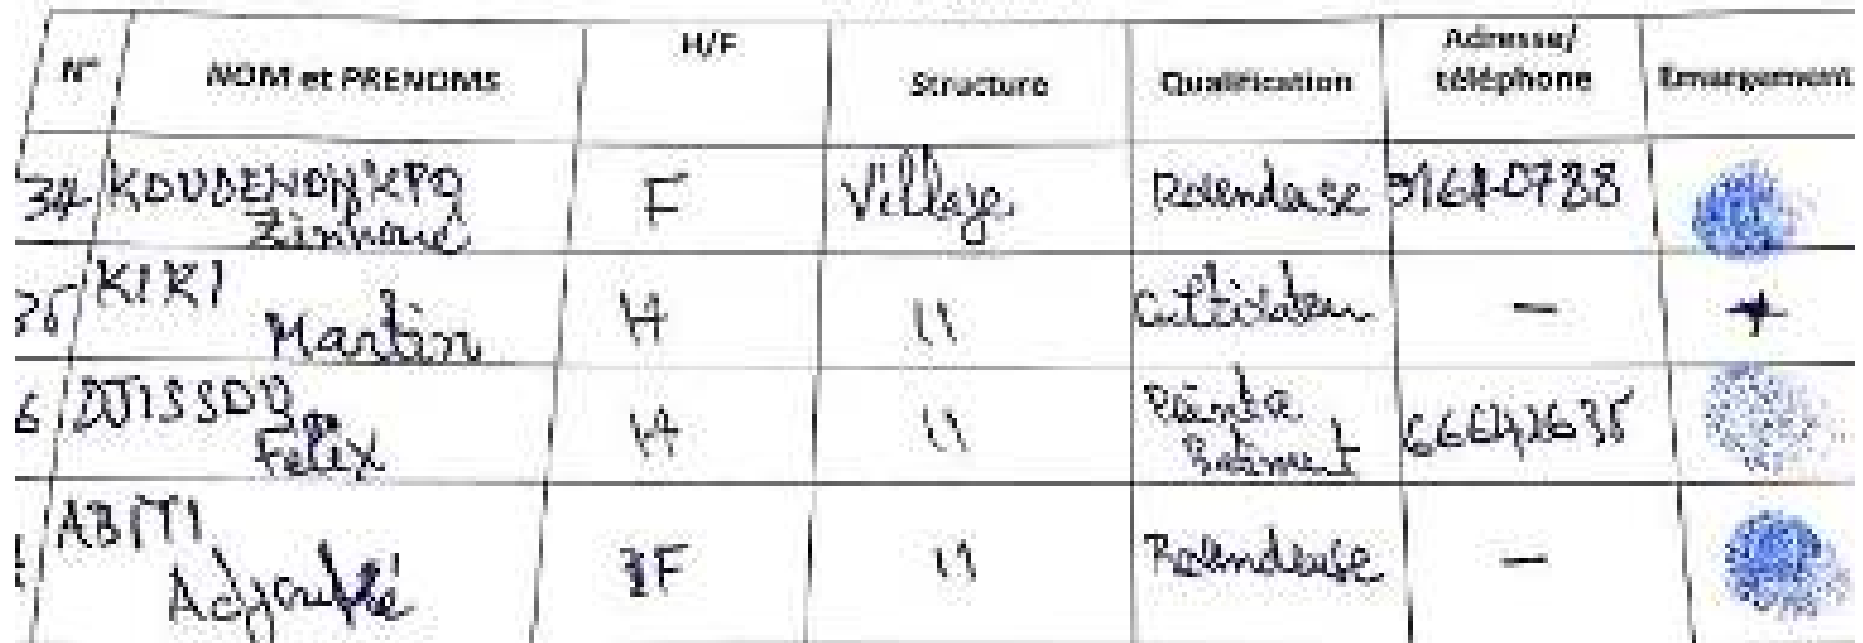 N° NOM et PRENOMS H/F Structure Qualification Adresse/ téléphone Emargement
34 KOUDENONKPO F Village Revendeuse
KIKI Martin H 11 Cultivateur —
6 ZOTISSOU Felix H 11 Peintre Batiment 66642635
ABITI F 11 Revendeuse —